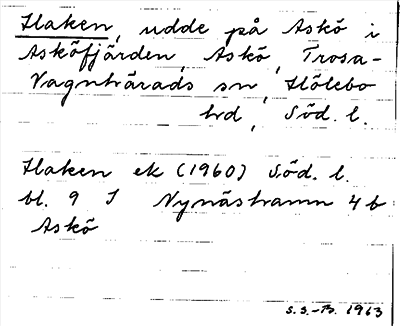 Haken, udde på Askö i
Asköfjärden, Askö, Trosa-
Vagnhärads sn, Hölebo
hd, Söd. l.
Haken ek (1960) Söd. l.
bl. 9 I Nynäshamn 4b
Askö
S.S.-B. 1963